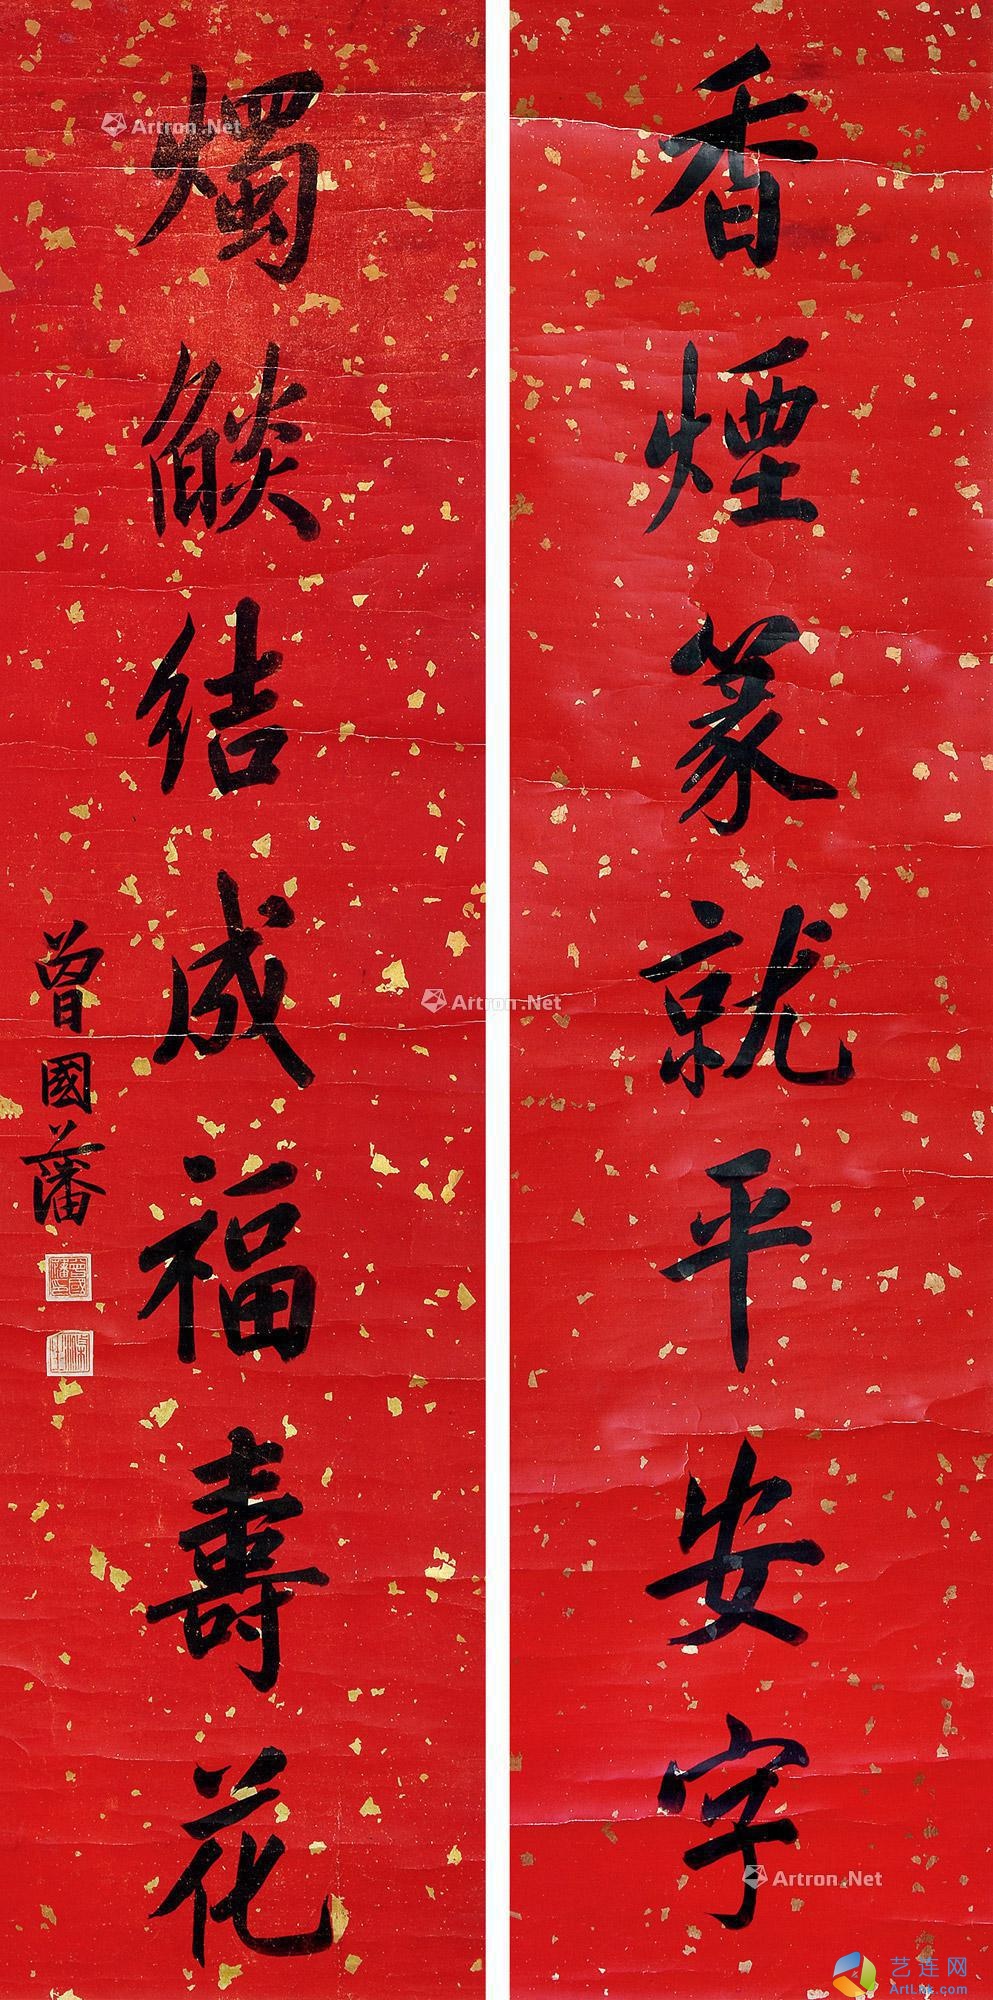 香煙篆就平安字
燭燄結成福壽花
曾國藩
Artron.Net
Artron.Net
Artron.Net
艺连网
ArtLink.com